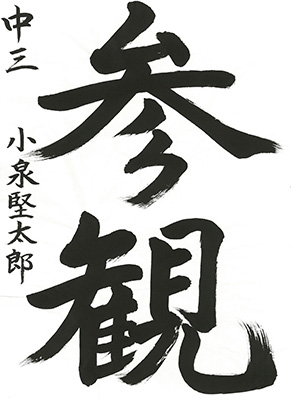 参観
中三 小泉堅太郎